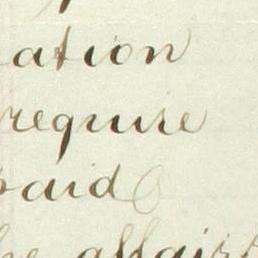 ation
require
paid
he affairs